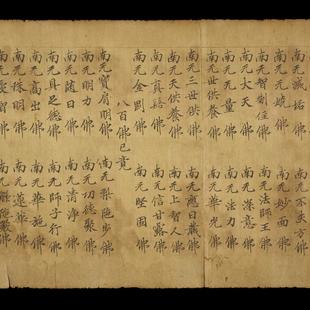 南无滅垢佛　南无不失方佛
南无无嬈佛　南无妙面佛
南无智制住佛　南无法師王佛
南无大天佛　南无深意佛
南无无量佛　南无法力佛
南无世供養佛　南无華光佛
南无三世供佛　南无應日藏佛
南无天供養佛　南无上智人佛
南无真髻佛　南无信甘露佛
南无金剛佛　南无堅固佛
八百佛已竟
南无寶肩明佛　南无梨陀步佛
南无明力佛　南无功德聚佛
南无隨日佛　南无清淨佛
南无具足德佛　南无師子行佛
南无高出佛　南无華施佛
南无珠明佛　南无蓮華佛
南无愛智佛　南无槃陀嚴佛